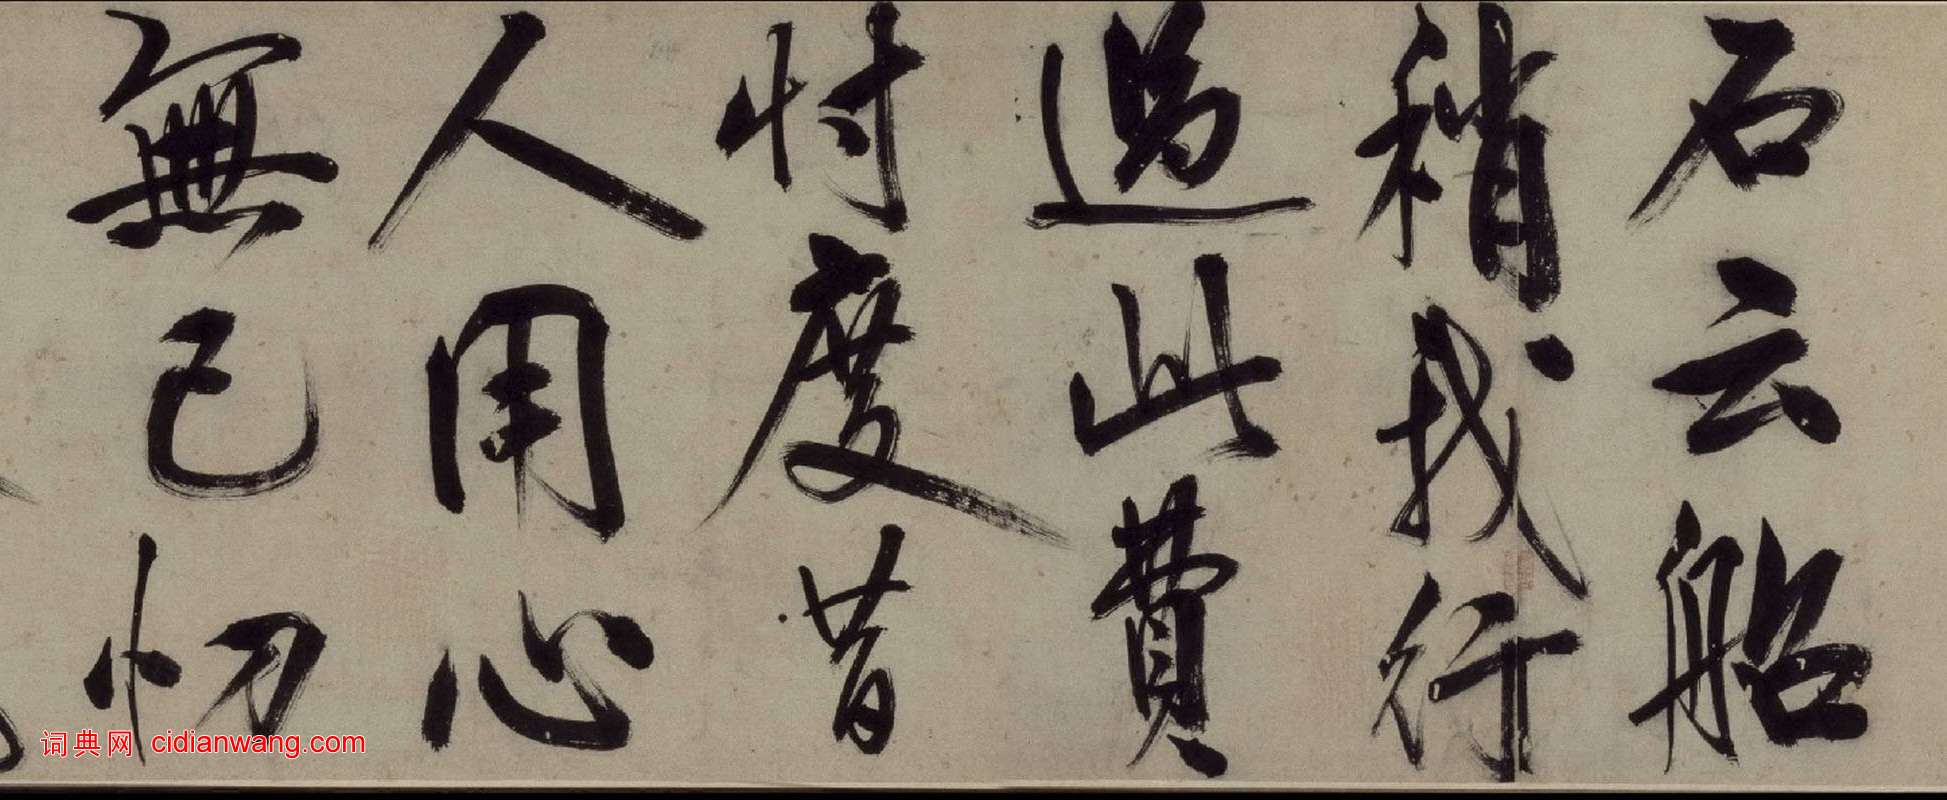 石云船
稍我行
過此費
忖度昔
人用心
無已忉
词典网 cidianwang.com